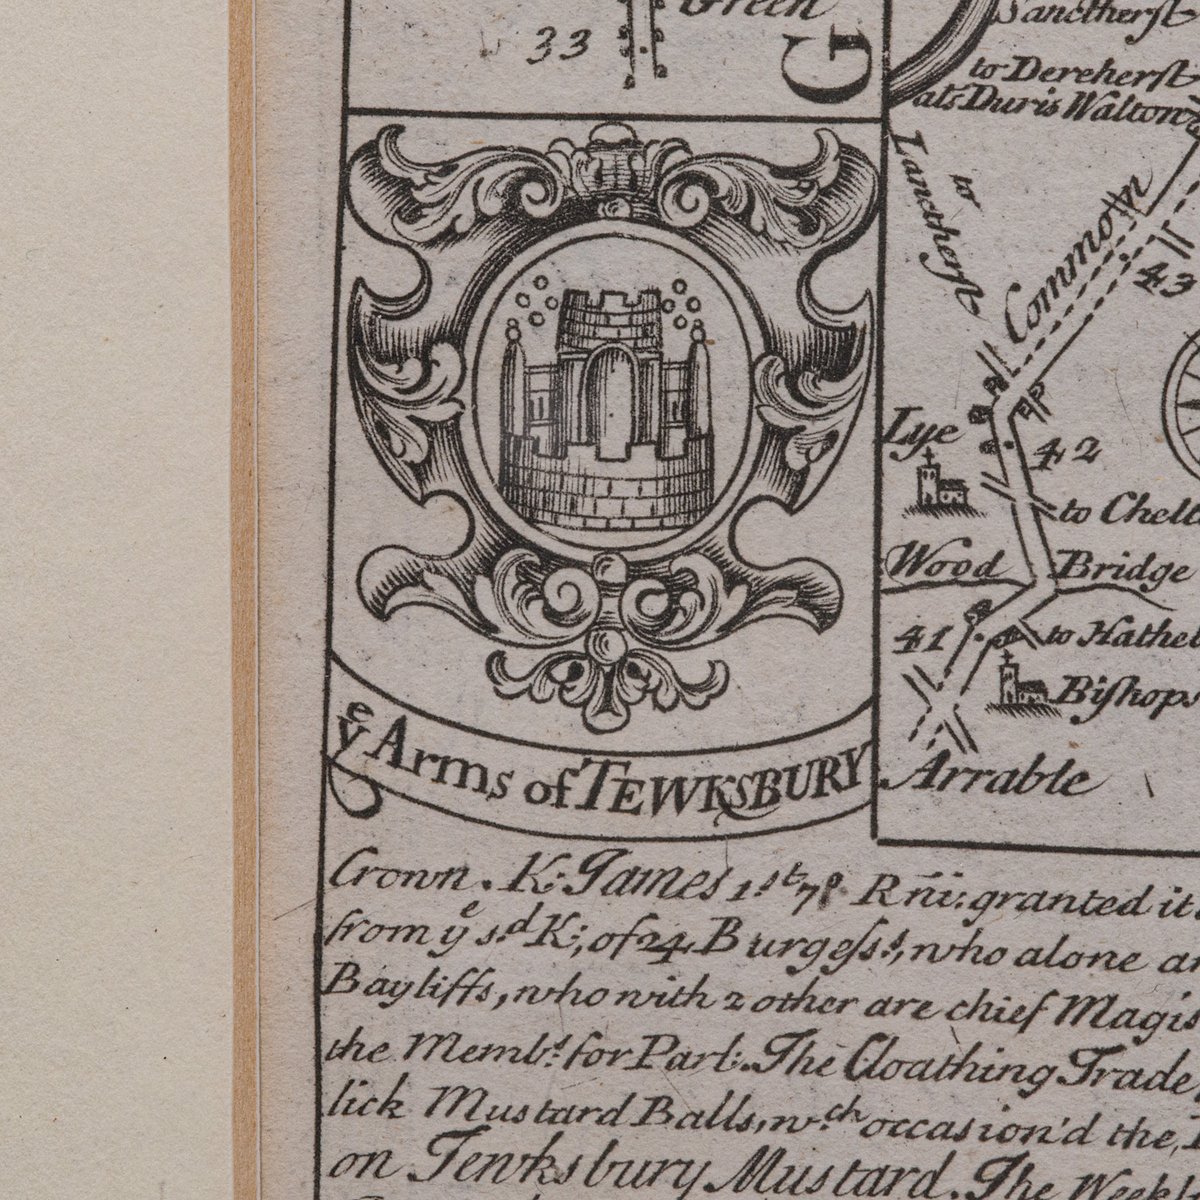 Green
33
G
Sanctherst
to Dereherst
als Duris Walton
to
Lanctherst
Common
43
Lye
42
to Chelt
Wood
Bridge
41
to Hathe
Bishops
Arrable
ye Arms of TEWKSBURY
Crown. K: James 1.st 7° Rñi: granted it
from ye s.d K:, of 24 Burgess.s, who alone ar
Bayliffs, who with 2 other are chief Magis
the Memb.s for Parl:. The Cloathing Trade
lick Mustard Balls, w.ch occasion'd the
on Tewksbury Mustard. The Weekl